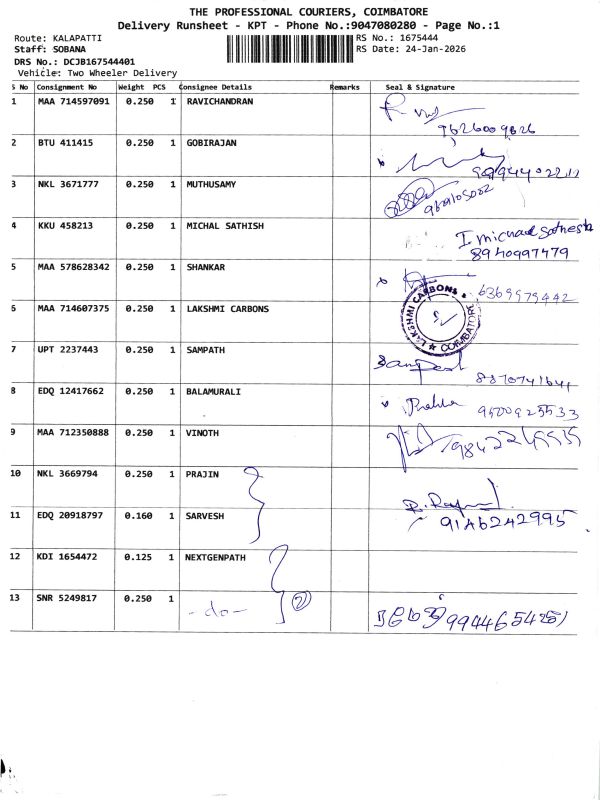 THE PROFESSIONAL COURIERS, COIMBATORE
Delivery Runsheet - KPT - Phone No.:9047080280 - Page No.:1
Route: KALAPATTI
RS No.: 1675444
Staff: SOBANA
RS Date: 24-Jan-2026
DRS No.: DCJB167544401
Vehicle: Two Wheeler Delivery
S No Consignment No Weight PCS Consignee Details Remarks Seal & Signature
1 MAA 714597091 0.250 1 RAVICHANDRAN
9626009826
2 BTU 411415 0.250 1 GOBIRAJAN
3 NKL 3671777 0.250 1 MUTHUSAMY
4 KKU 458213 0.250 1 MICHAL SATHISH
I michael Sathesh
8940997479
5 MAA 578628342 0.250 1 SHANKAR
6369979442
6 MAA 714607375 0.250 1 LAKSHMI CARBONS
LAKSHMI CARBONS
COIMBATORE
7 UPT 2237443 0.250 1 SAMPATH
Sampath
8 EDQ 12417662 0.250 1 BALAMURALI
9500925533
9 MAA 712350888 0.250 1 VINOTH
10 NKL 3669794 0.250 1 PRAJIN
11 EDQ 20918797 0.160 1 SARVESH
9146242995
12 KDI 1654472 0.125 1 NEXTGENPATH
13 SNR 5249817 0.250 1 - do - 2